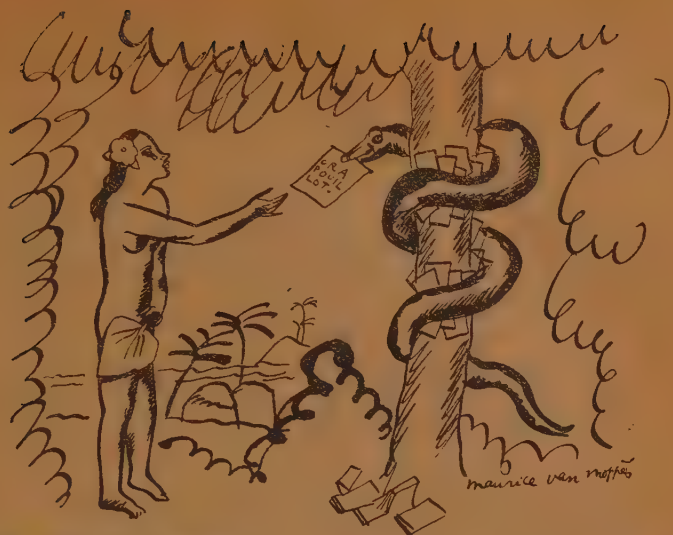 CRA
POUIL
LOT.
maurice van moppès